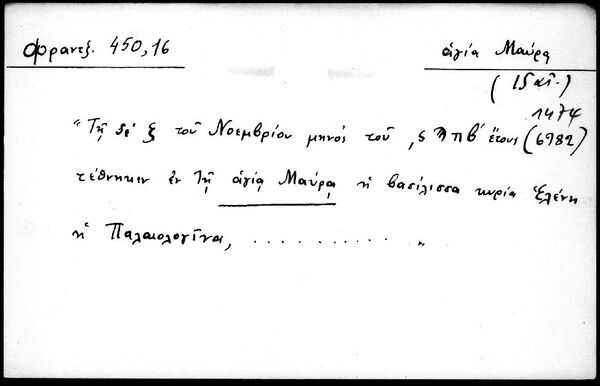 Φραντζ. 450,16
ἁγία Μαύρα
(15 αἰ.)
1474
"Τῇ δὲ ξ τοῦ Νοεμβρίου μηνός τοῦ ,ςϠπβ' ἔτους (6982)
τέθνηκεν ἐν τῇ ἁγίᾳ Μαύρᾳ ἡ βασίλισσα κυρία Ἑλένη
ἡ Παλαιολογῖνα, . . . . . . . . . . . "